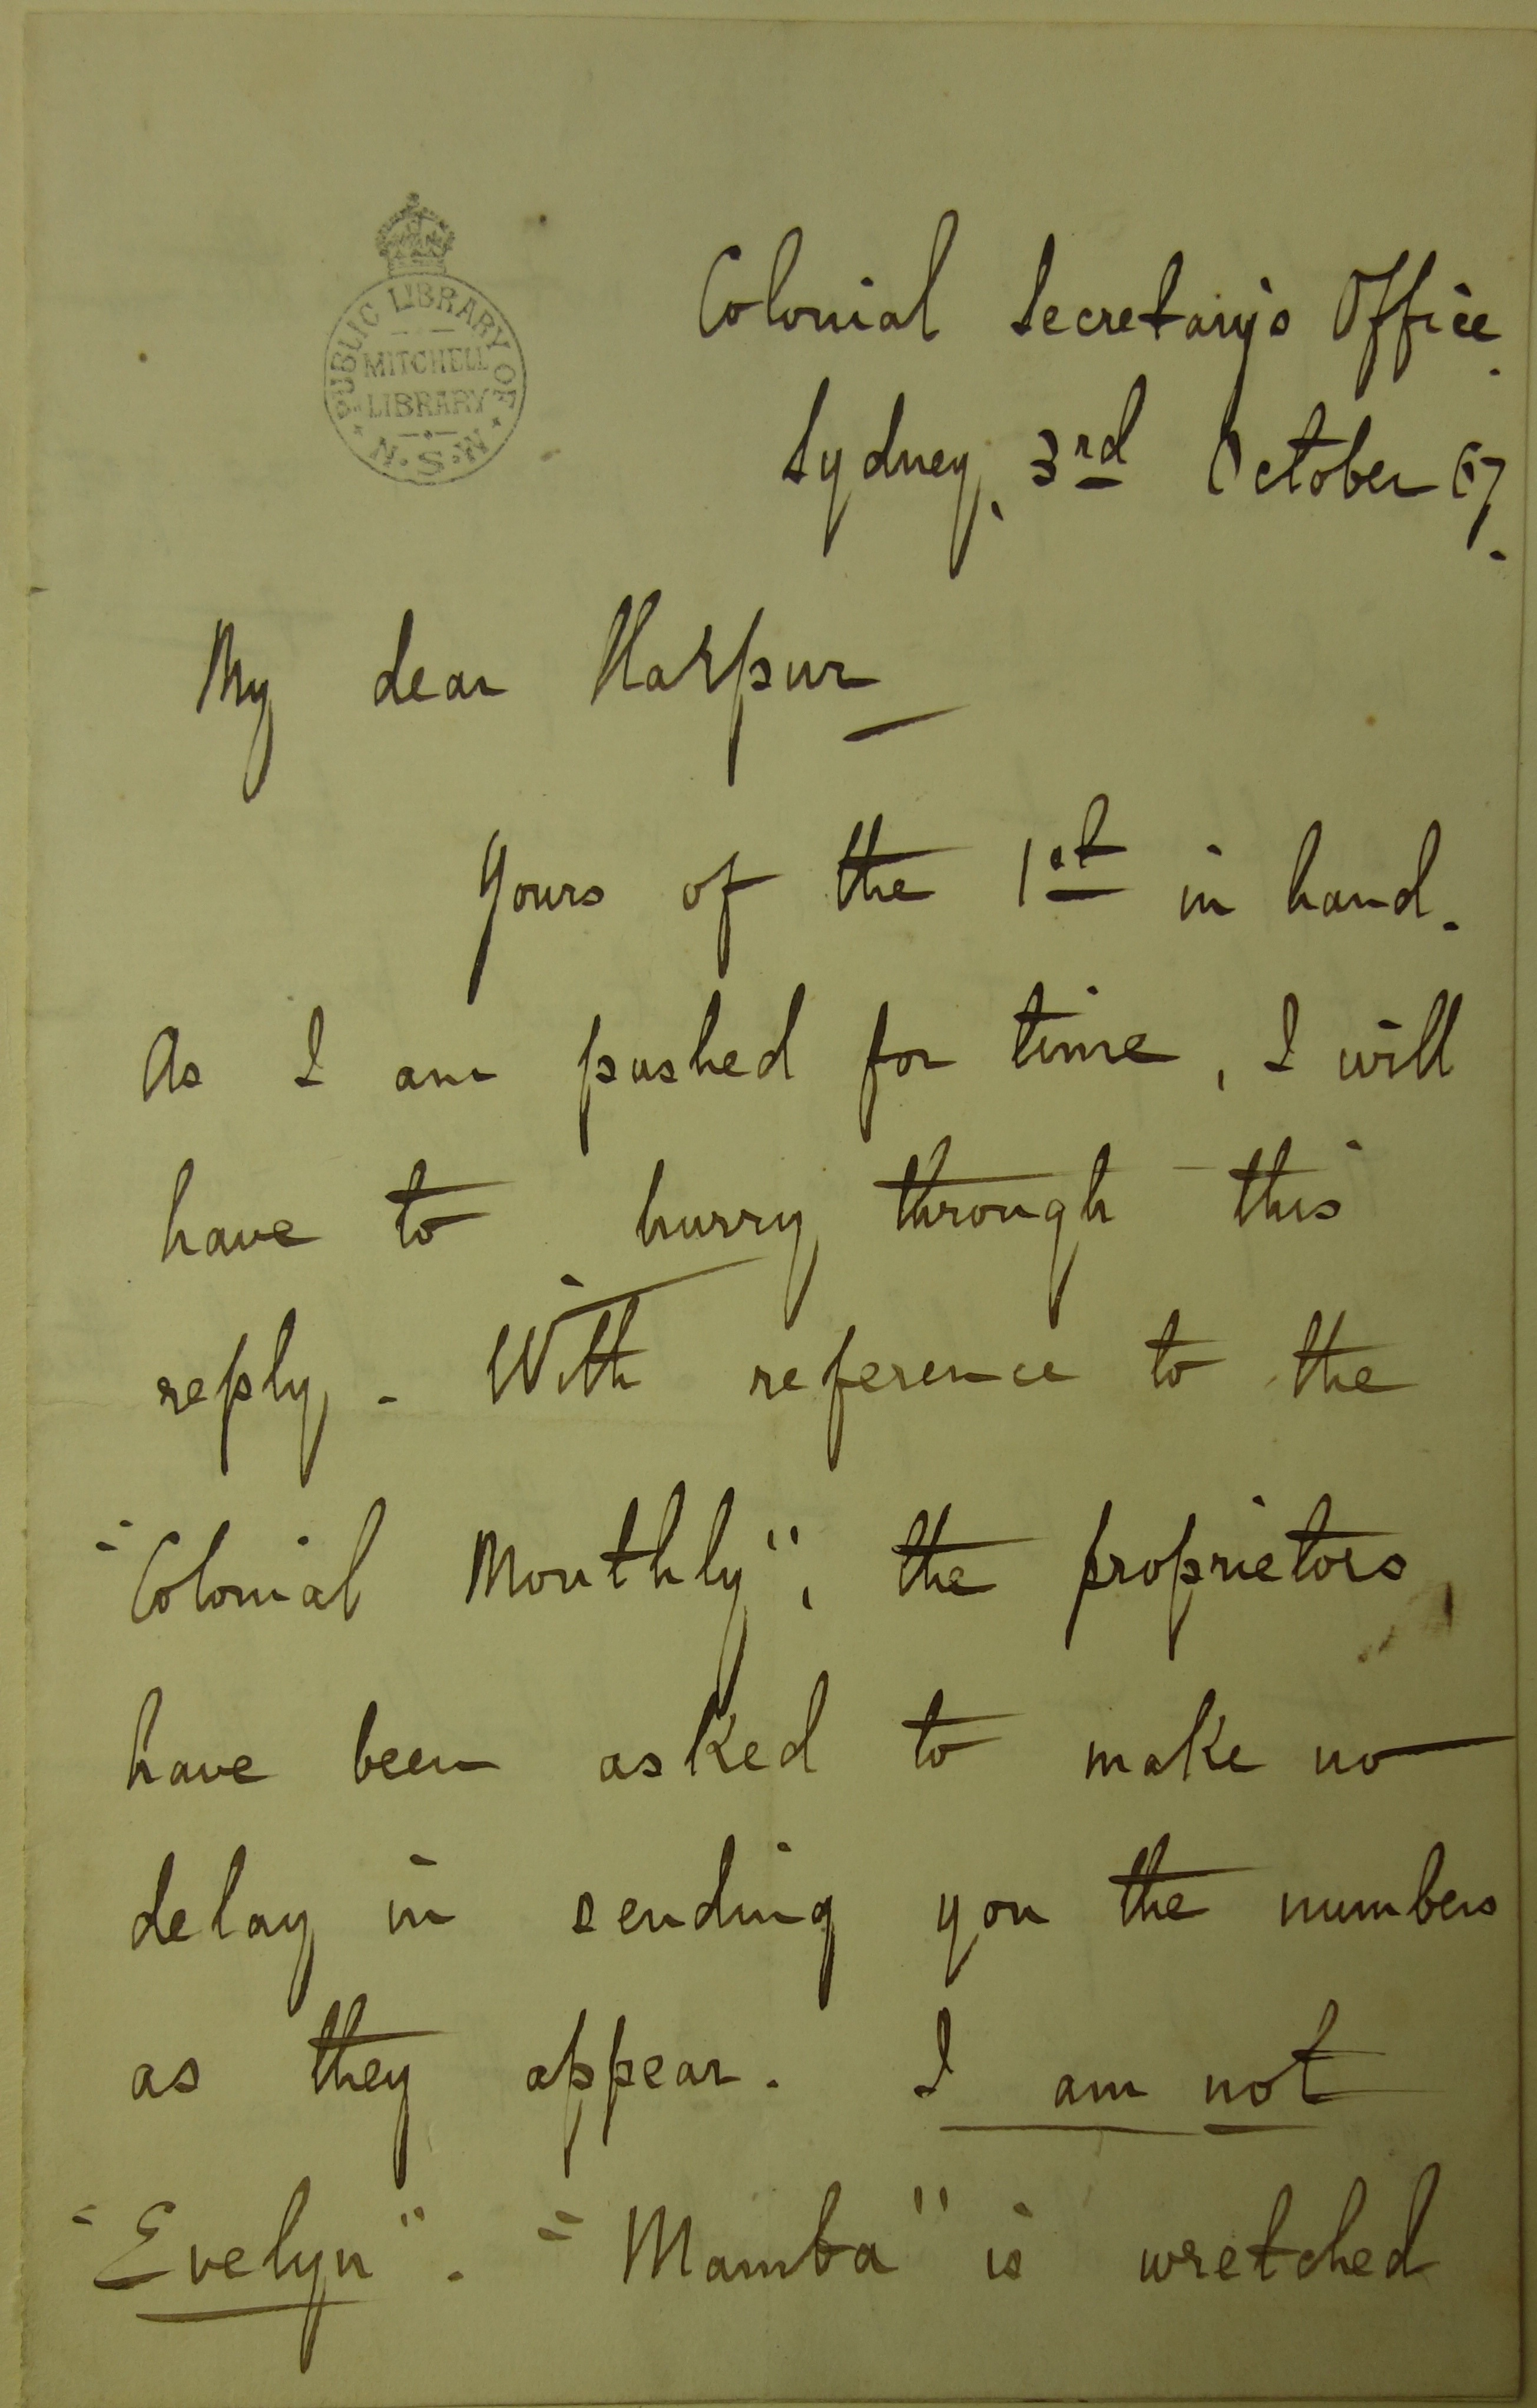 PUBLIC LIBRARY OF
MITCHELL
LIBRARY
N.S.W.
Colonial Secretary's Office.
Sydney, 3rd October 67.
My dear Harpur
Yours of the 1st in hand.
As I am pushed for time, I will
have to hurry through this
reply. With reference to the
"Colonial Monthly", the proprietors
have been asked to make no
delay in sending you the numbers
as they appear. I am not
"Evelyn". "Mamba" is wretched